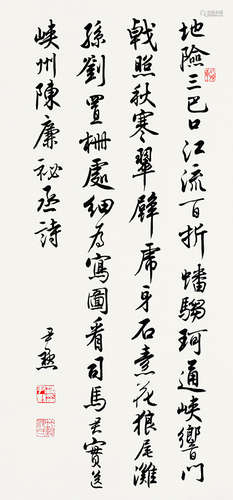 地險三巴口江流百折蟠騶珂通峽響門
戟照秋寒翠壁虎牙石素花狼尾灘
孫劉置柵處細為寫圖看司馬君實送
峽州陳廉祕丞詩
尹默